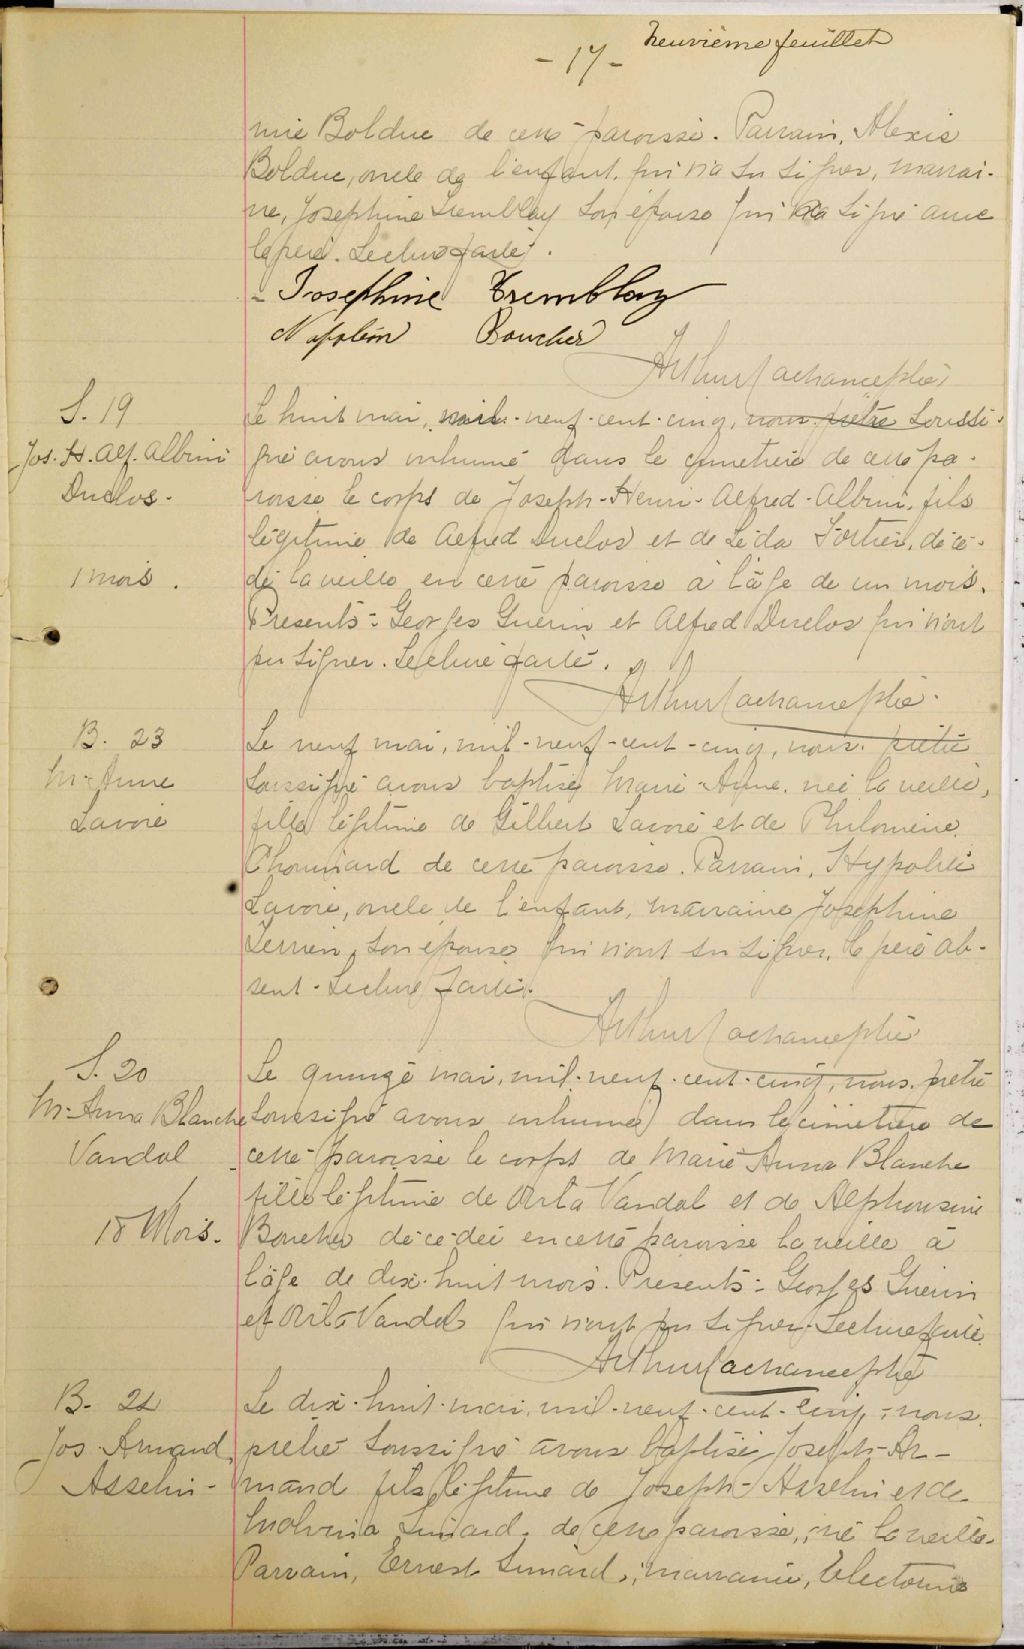 - 17 - neuvième feuillet
mie Bolduc de cette paroisse. Parrain, Alexis
Bolduc, oncle de l'enfant, qui n'a su signer, marrai-
ne, Josephine Tremblay son épouse qui a signé avec
le père. Lecture faite.
- Josephine Tremblay
Napoléon Boucher
Arthur Lachance ptre
S. 19
Jos. H. Alf. Albini
Duclos -
1 mois.
Le huit mai, mil-neuf-cent-cinq, nous prêtre soussi-
gné avons inhumé dans le cimetière de cette pa-
roisse le corps de Joseph-Henri-Alfred-Albini, fils
légitime de Alfred Duclos et de Léda Fortier, décé-
dé la veille en cette paroisse à l'âge de un mois.
Présents: Georges Guérin et Alfred Duclos qui n'ont
pu signer. Lecture faite.
Arthur Lachance ptre.
B. 23
M-Anne
Lavoie
Le neuf mai, mil-neuf-cent-cinq, nous, prêtre
soussigné avons baptisé Marie-Anne, née la veille,
fille légitime de Gilbert Lavoie et de Philomène
Chouinard de cette paroisse. Parrain, Hypolite
Lavoie, oncle de l'enfant, marraine Josephine
son épouse qui n'ont su signer, le père ab-
sent. Lecture faite.
Arthur Lachance ptre
S. 20
M-Anna Blanche
Vandal
18 Mois.
Le quinze mai, mil-neuf-cent-cinq, nous prêtre
soussigné avons inhumé dans le cimetière de
cette paroisse le corps de Marie Anna Blanche
fille légitime de Vandal et de Alphonsine
Boucher décédée en cette paroisse la veille à
l'âge de dix-huit mois. Présents: Georges Guérin
et Vandal qui n'ont pu signer. Lecture faite.
Arthur Lachance ptre
B. 24
Jos. Armand
Asselin -
Le dix-huit mai, mil-neuf-cent-cinq, nous
prêtre soussigné avons baptisé Joseph-Ar-
mand fils légitime de Joseph Asselin et de
Malvina Simard, de cette paroisse, né la veille.
Parrain, Ernest Simard, marraine,